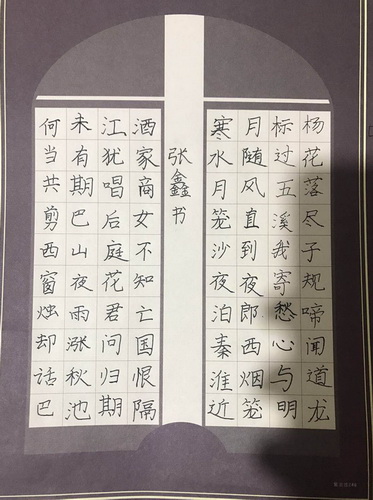 杨花落尽子规啼闻道龙
标过五溪我寄愁心与明
月随风直到夜郎西烟笼
寒水月笼沙夜泊秦淮近
张鑫书
酒家商女不知亡国恨隔
江犹唱后庭花君问归期
未有期巴山夜雨涨秋池
何当共剪西窗烛却话巴